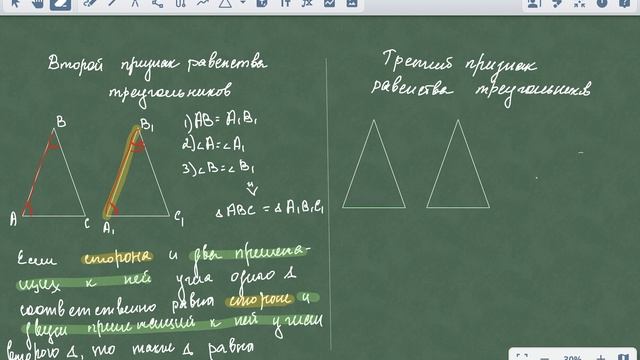 Второй признак равенства
треугольников
B
A
C
B₁
A₁
C₁
1) AB = A₁B₁
2) ∠A = ∠A₁
3) ∠B = ∠B₁
⇓
△ABC = △A₁B₁C₁
Если сторона и два прилежа-
щих к ней угла одного △
соответственно равна стороне и
двум прилежащим к ней углам
второго △, то такие △ равны
Третий признак
равенства треугольников
30%